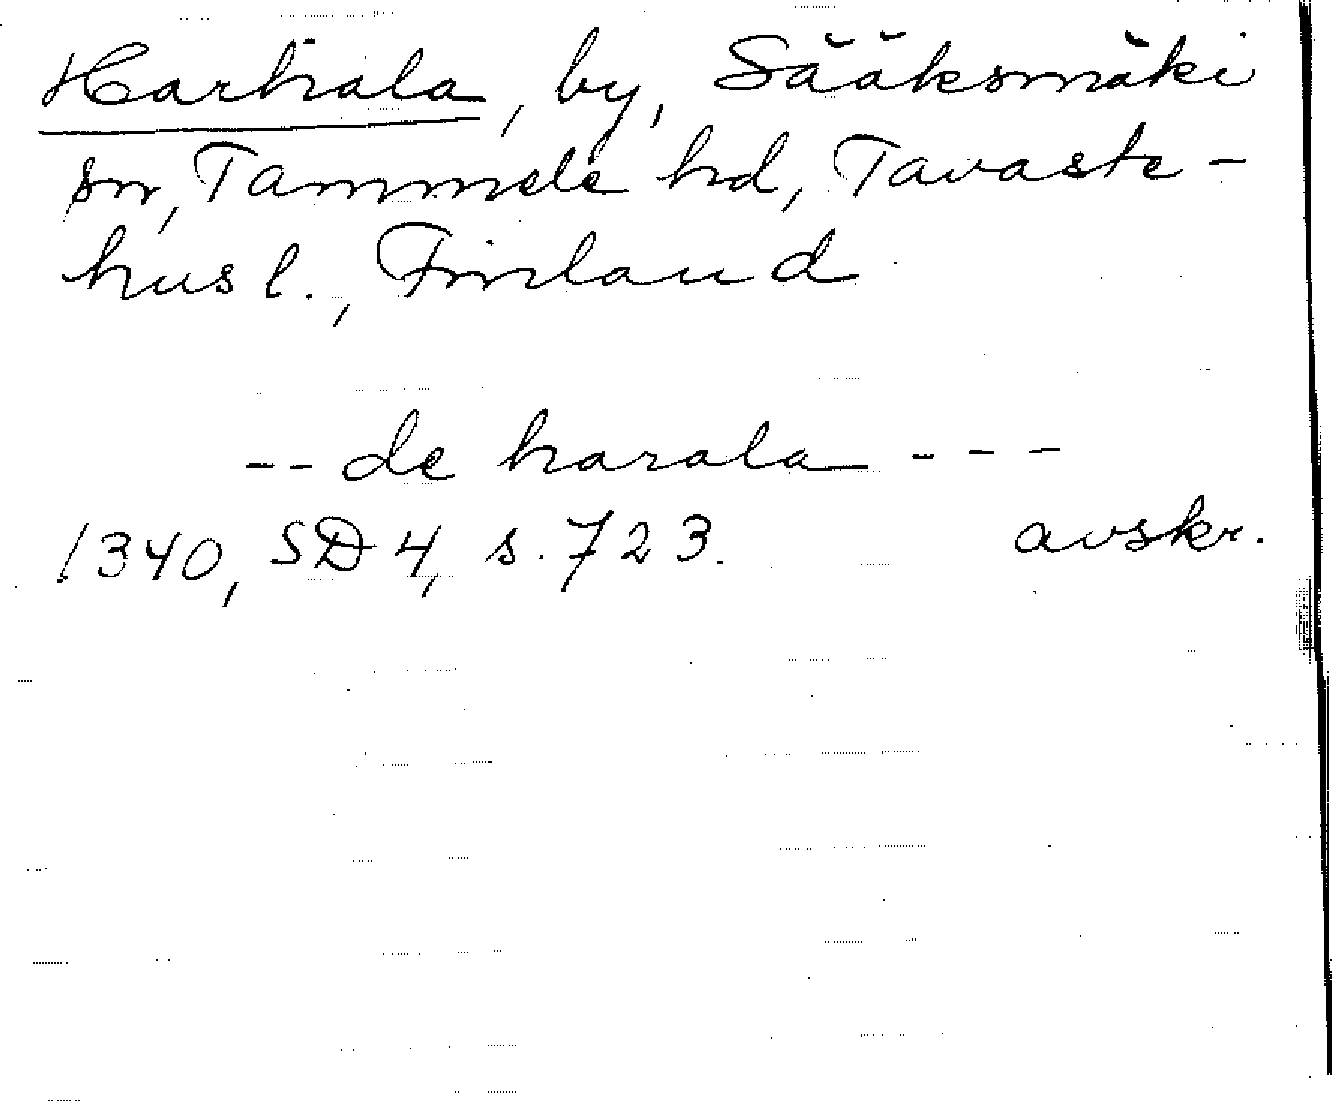 Harhiala, by, Sääksmäki
sn, Tammela hd, Tavaste-
hus l., Finland
-- de harala ---
1340, SD 4, s. 723. avskr.